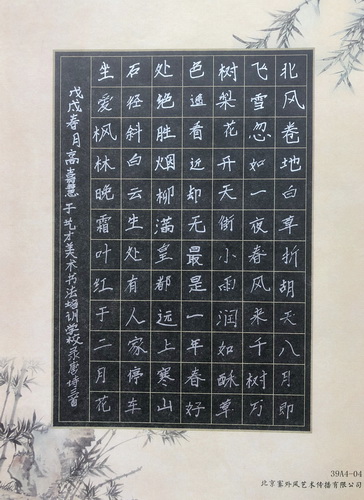 北风卷地白草折胡天八月即
飞雪忽如一夜春风来千树万
树梨花开天街小雨润如酥草
色遥看近却无最是一年春好
处绝胜烟柳满皇都远上寒山
石径斜白云生处有人家停车
坐爱枫林晚霜叶红于二月花
戊戌春月高嘉慧于艺才美术书法培训学校录唐诗三首
39A4-04
北京塞外风艺术传播有限公司